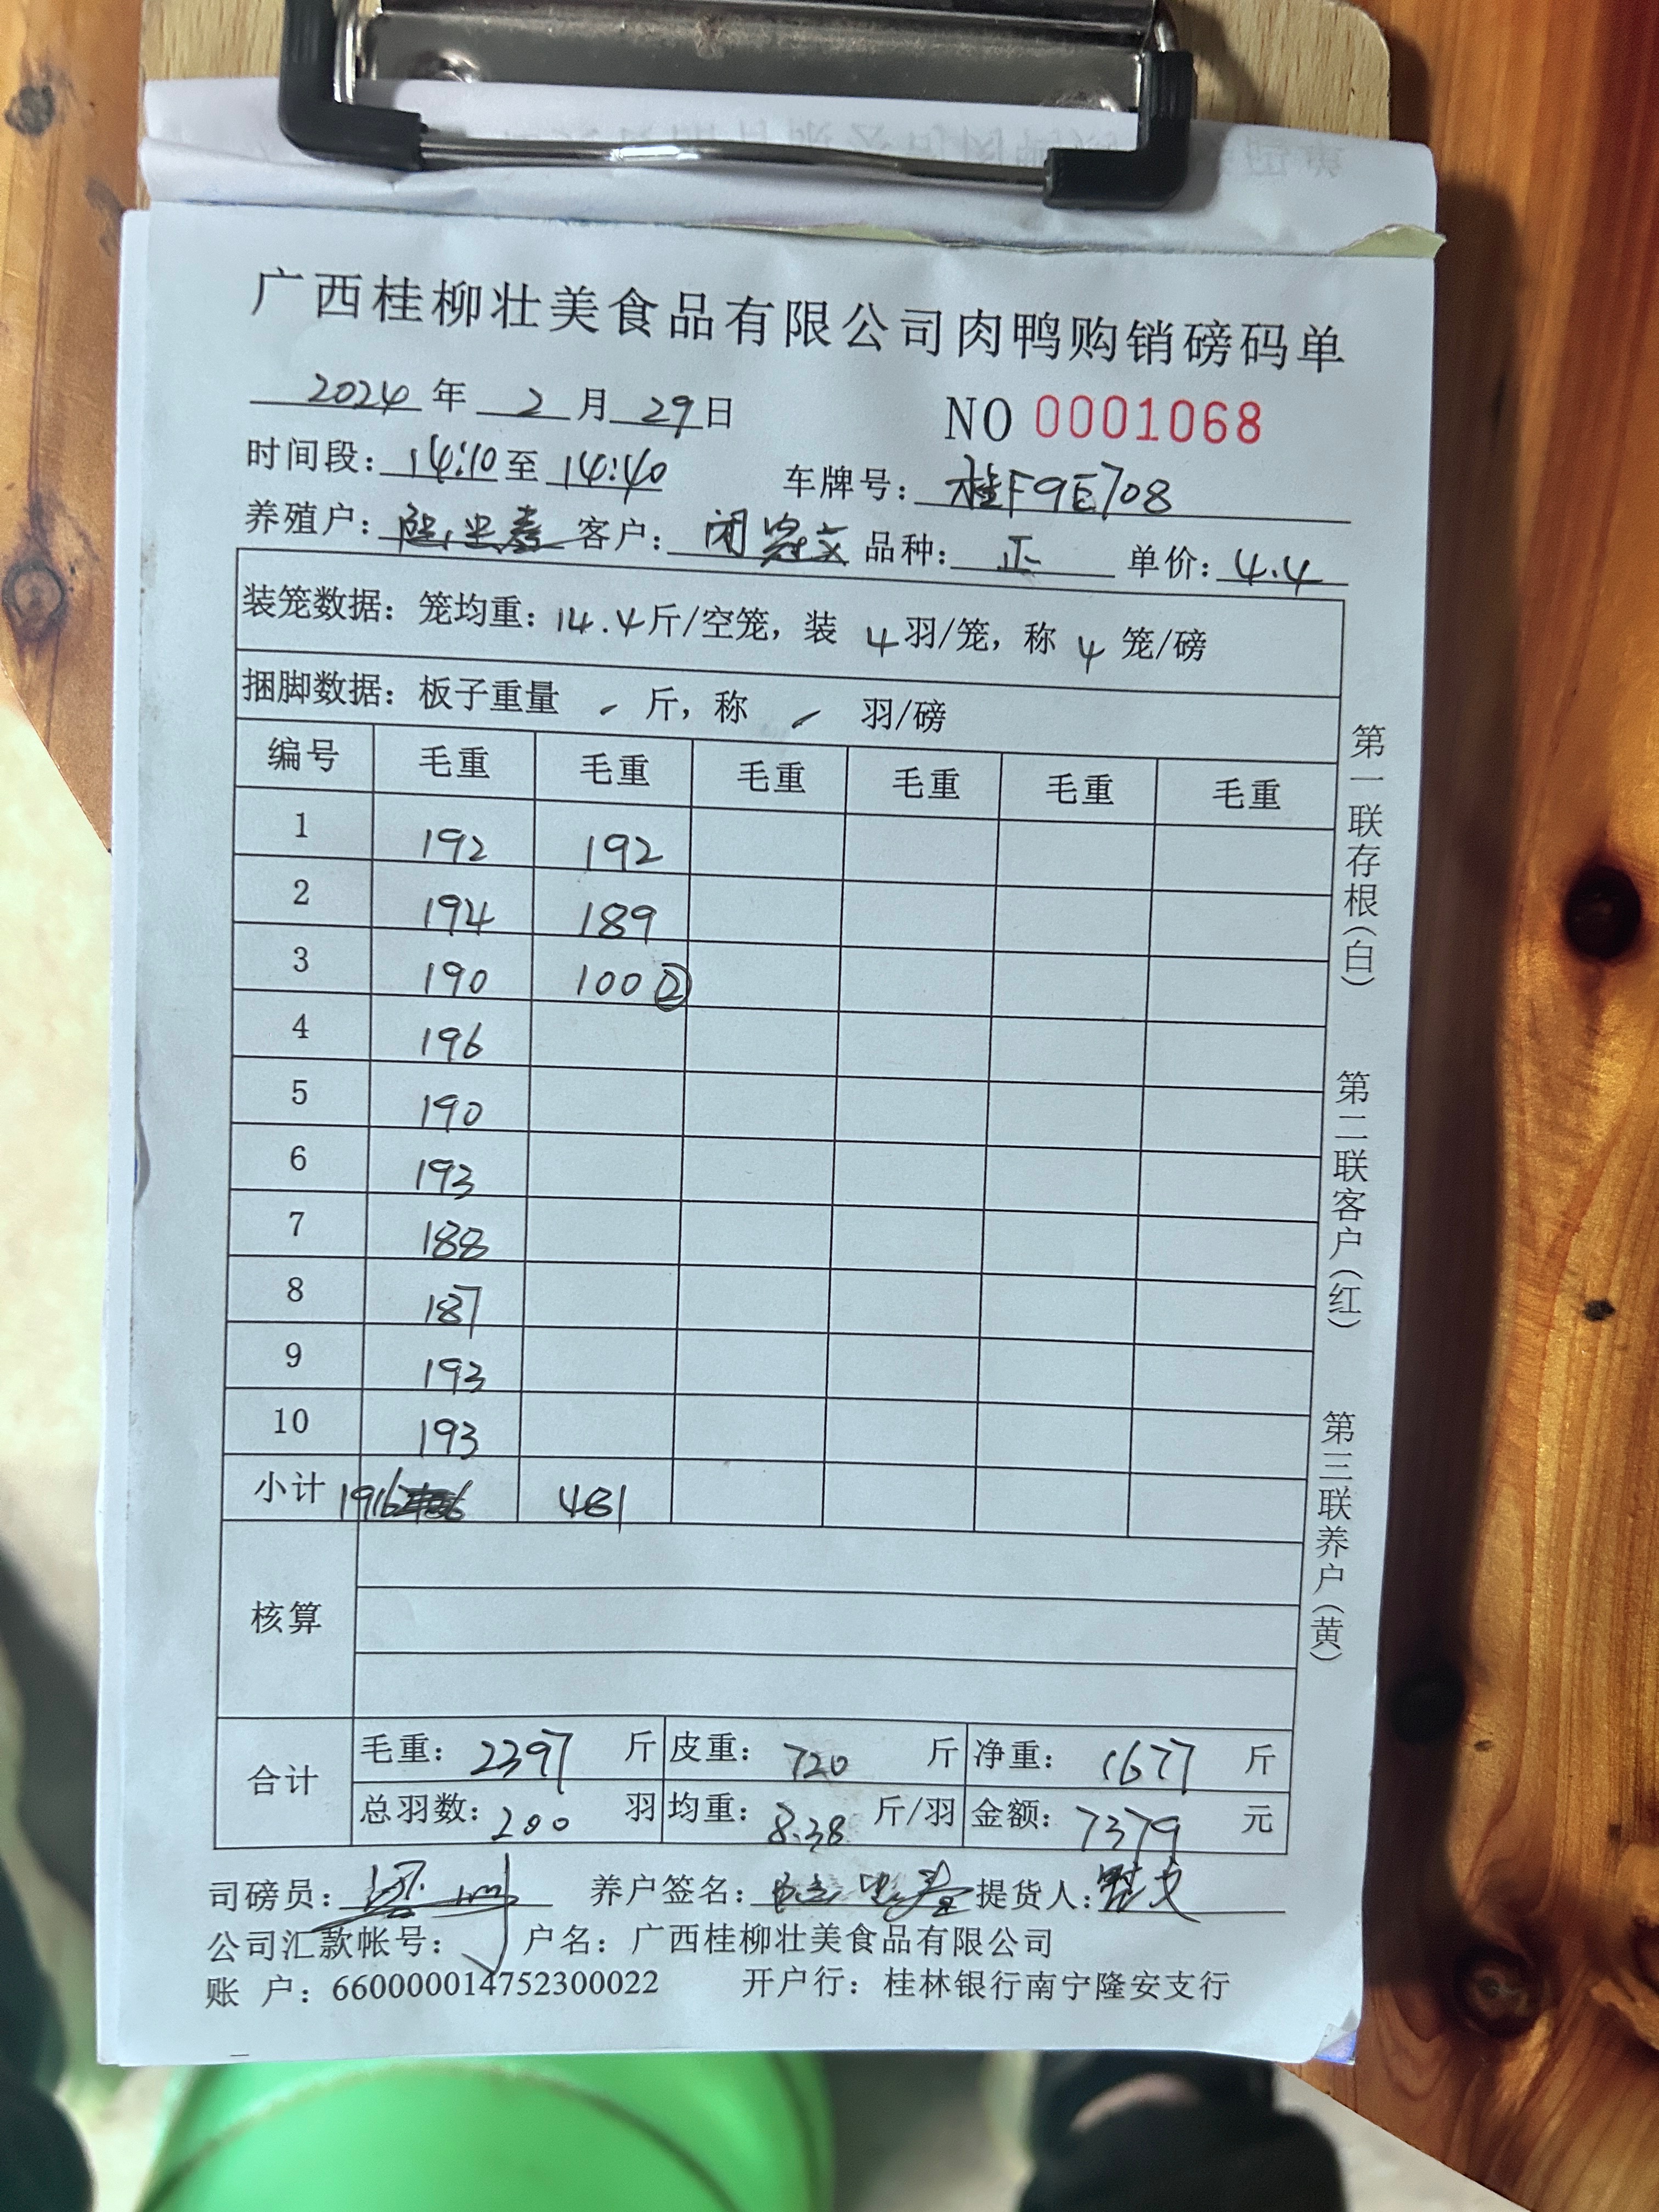 广西桂柳壮美食品有限公司肉鸭购销磅码单
2024 年 2 月 29 日 NO 0001068
时间段: 14:10 至 14:40 车牌号: 桂F9E708
养殖户: 客户: 闭 文 品种: 正 单价: 4.4
装笼数据: 笼均重: 14.4 斤/空笼, 装 4 羽/笼, 称 4 笼/磅
捆脚数据: 板子重量 斤, 称 羽/磅
编号 毛重 毛重 毛重 毛重 毛重 毛重
1 192 192
2 194 189
3 190 100 ②
4 196
5 190
6 193
7 188
8 187
9 193
10 193
小计 1916 481
核算
合计 毛重: 2397 斤 皮重: 720 斤 净重: 1677 斤
总羽数: 200 羽 均重: 8.38 斤/羽 金额: 7379 元
司磅员: 养户签名: 提货人:
公司汇款帐号: 户名: 广西桂柳壮美食品有限公司
账 户: 660000014752300022 开户行: 桂林银行南宁隆安支行
第一联存根(白)
第二联客户(红)
第三联养户(黄)